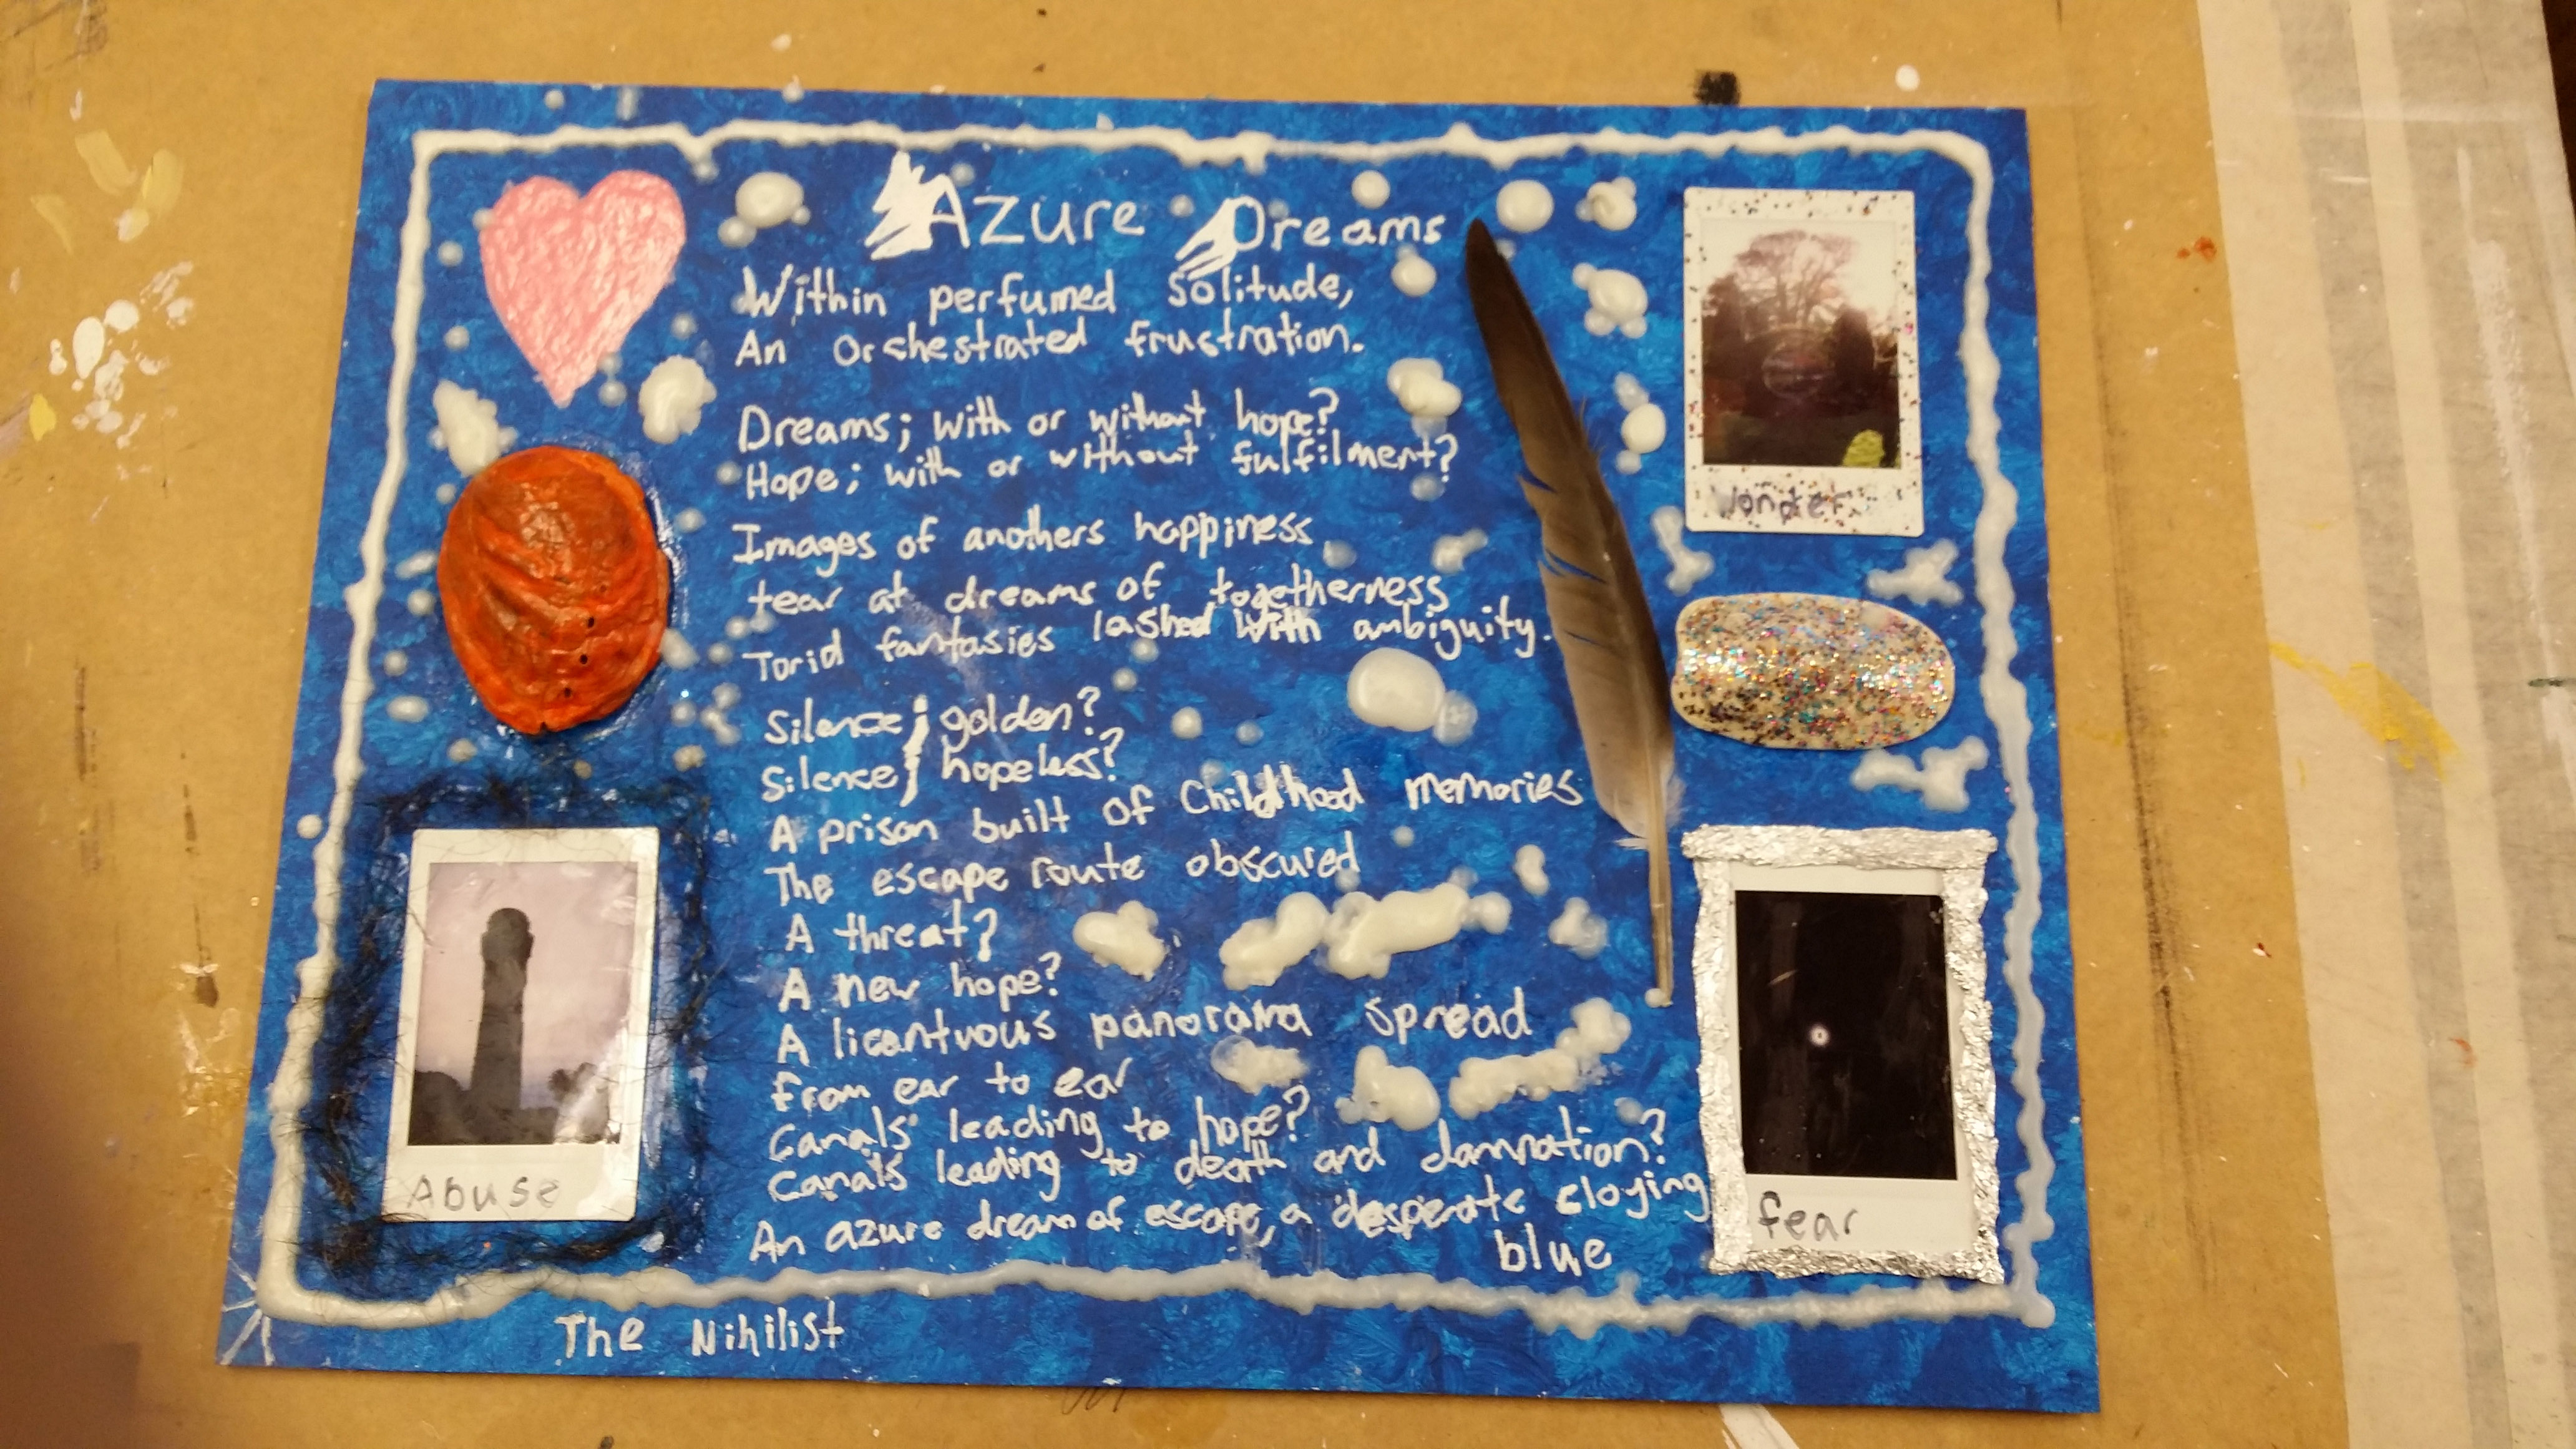 Azure Dreams
Within perfumed solitude,
An orchestrated frustration.
Dreams; with or without hope?
Hope; with or without fulfilment?
Images of anothers happiness
tear at dreams of togetherness
Torid fantasies lashed with ambiguity.
Silence; golden?
Silence; hopeless?
A prison built of Childhood memories
The escape route obscured
A threat?
A new hope?
A licentuous panorama spread
from ear to ear
Canals' leading to hope?
Canals leading to death and damnation?
An azure dream of escape, a desperate cloying
blue
The Nihilist
Abuse
Wonder
fear